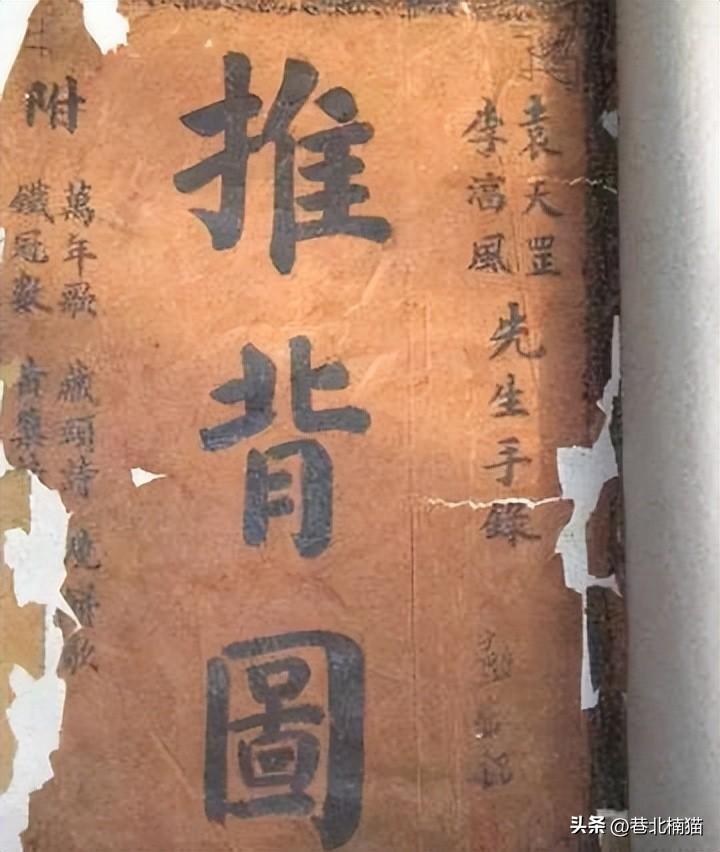 袁天罡
李湻風
先生手錄
推背圖
附
萬年歌 藏頭詩 燒餅歌
鐵冠數
头条 @巷北楠猫